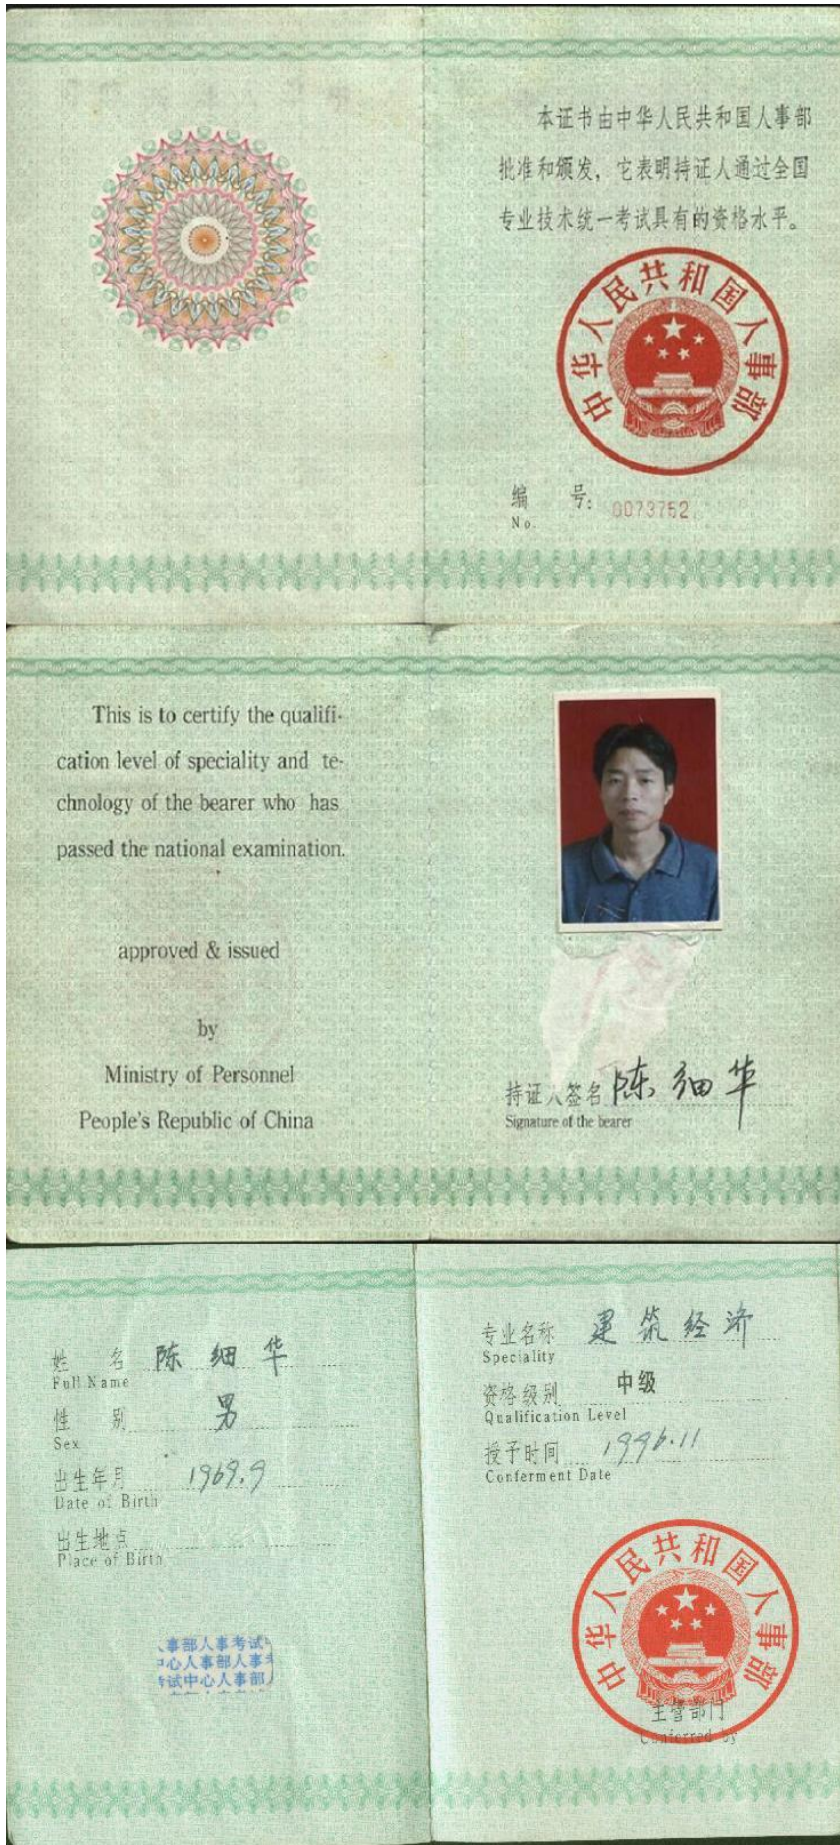 本证书由中华人民共和国人事部
批准和颁发，它表明持证人通过全国
专业技术统一考试具有的资格水平。
中华人民共和国人事部
编 号: 0073752
No.
This is to certify the qualifi-
cation level of speciality and te-
chnology of the bearer who has
passed the national examination.
approved & issued
by
Ministry of Personnel
People's Republic of China
持证人签名 陈细华
Signature of the bearer
姓 名 陈细华
Full Name
性 别 男
Sex
出生年月 1969.9
Date of Birth
出生地点
Place of Birth
人事部人事考试中
中心人事部人事考
考试中心人事部人
专业名称 建筑经济
Speciality
资格级别 中级
Qualification Level
授予时间 1996.11
Conferment Date
中华人民共和国人事部
主管部门
Conferred by